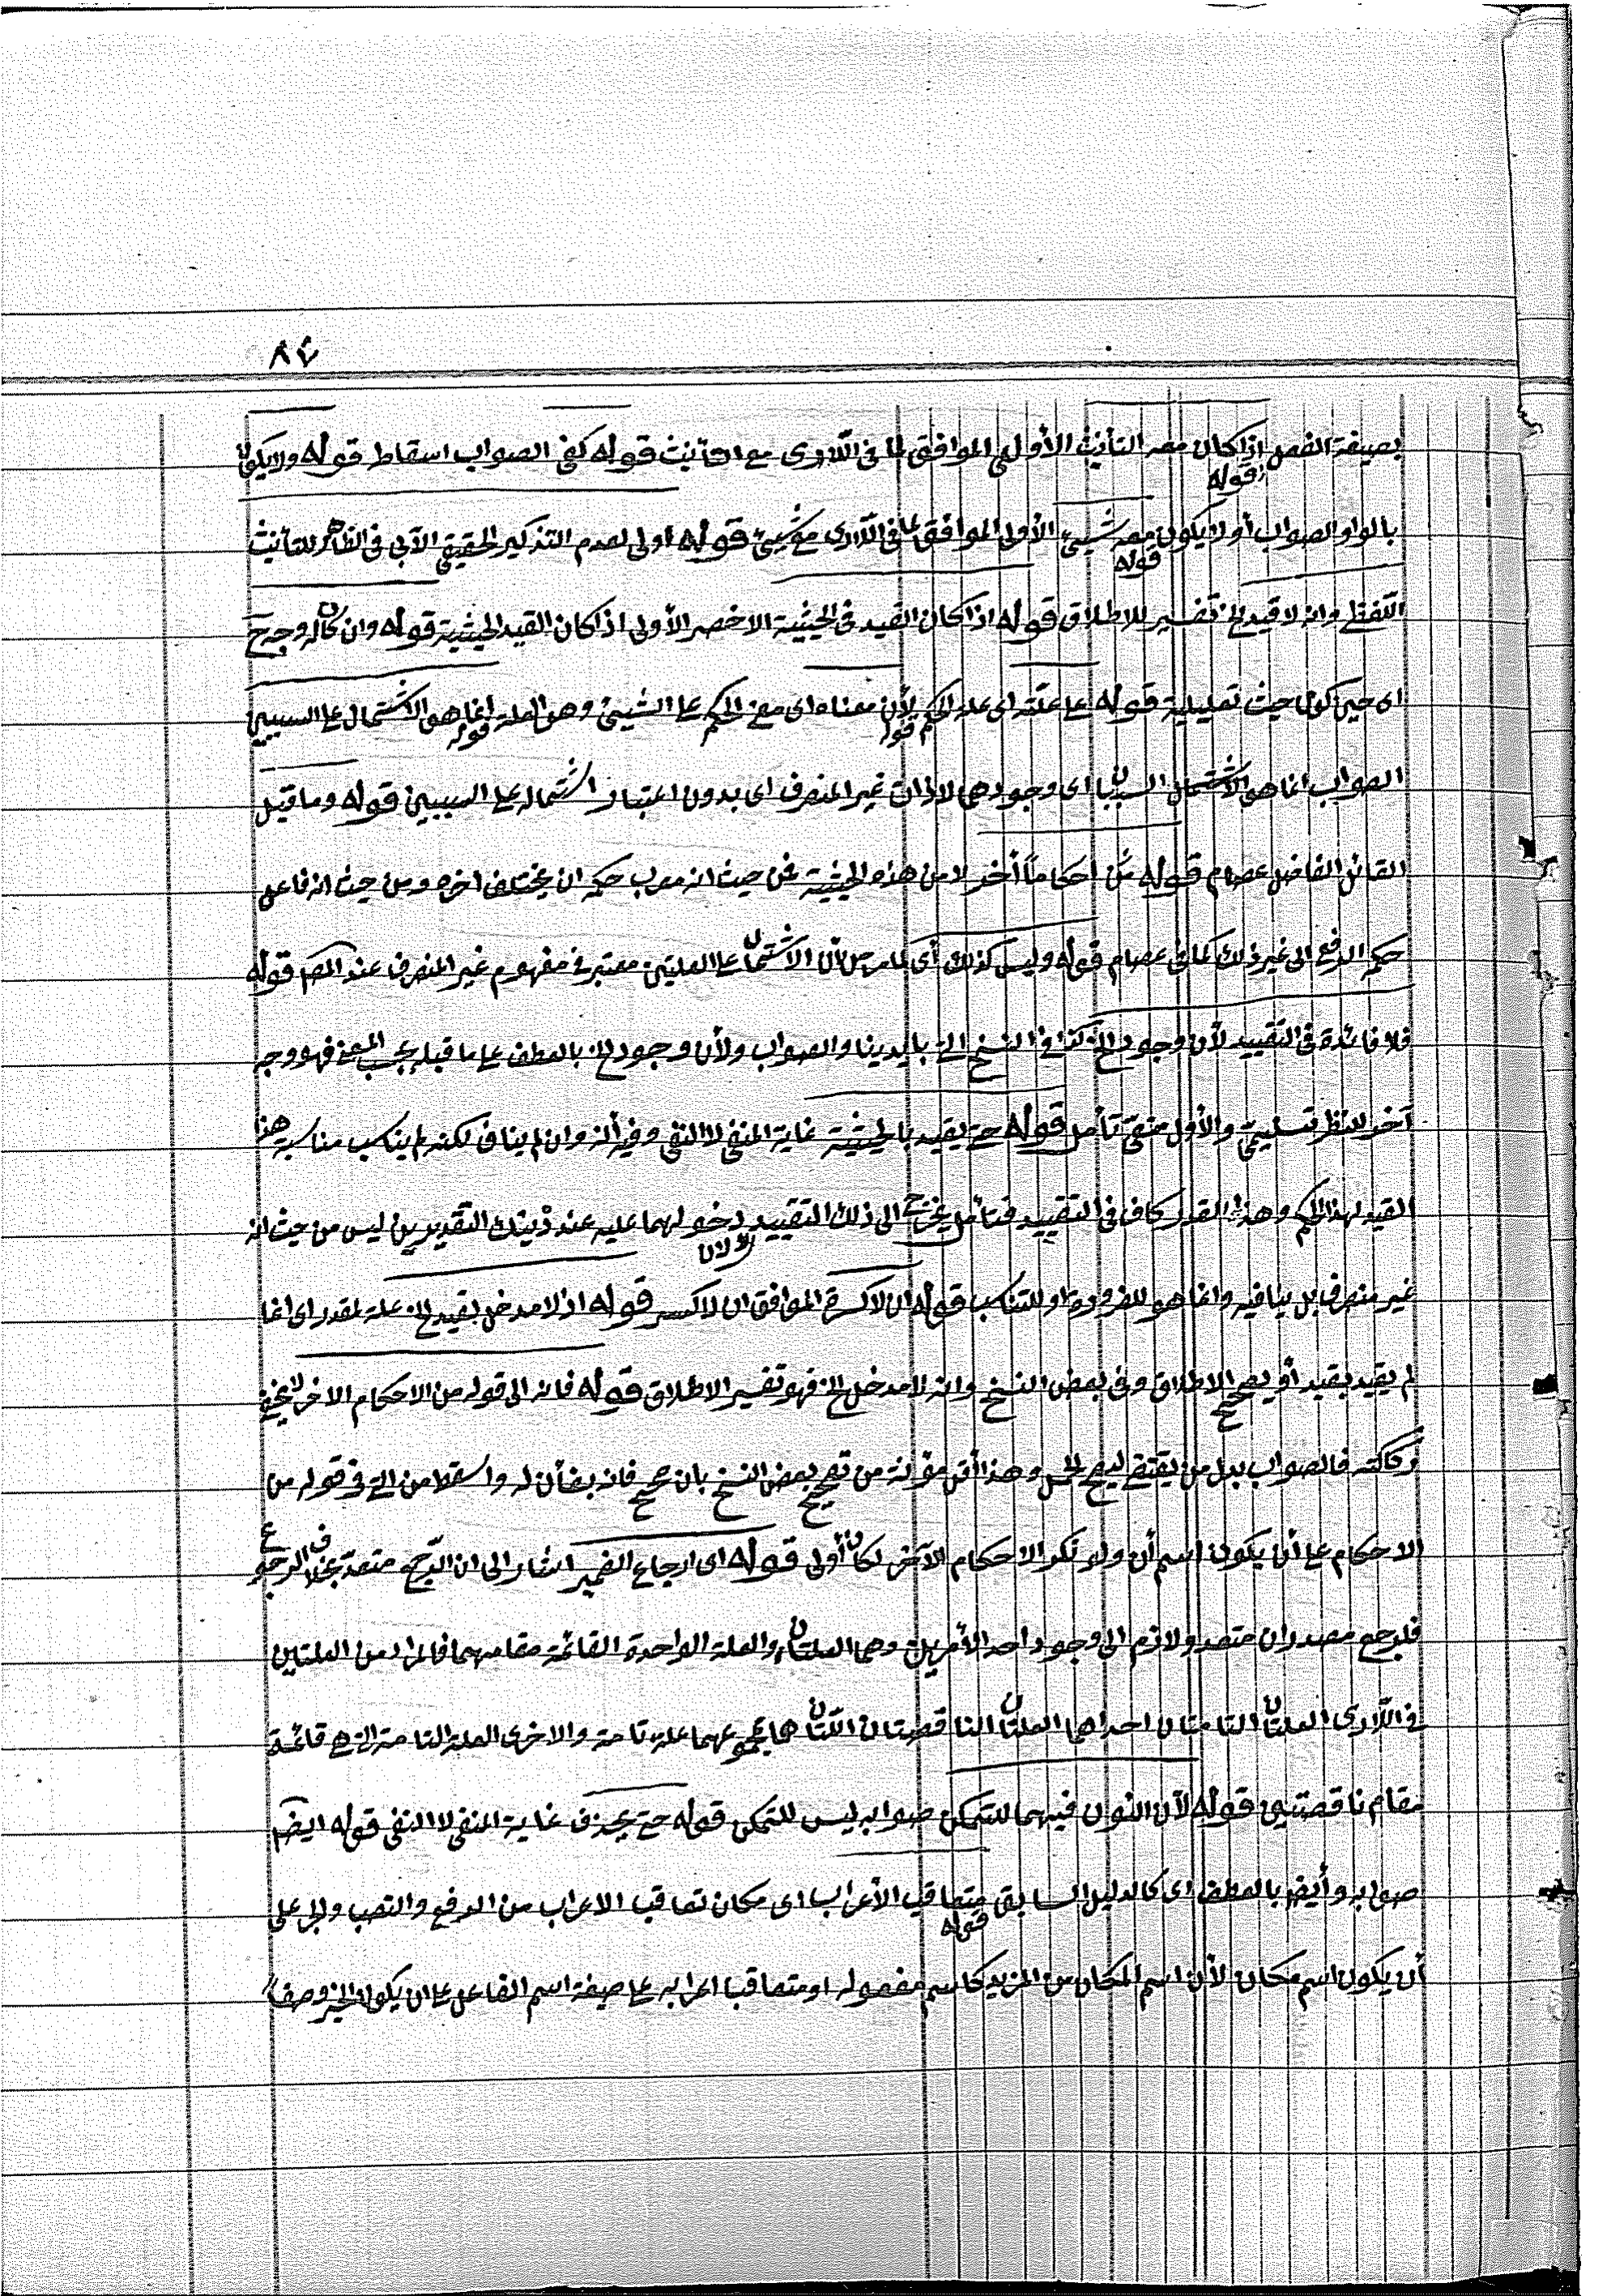 ٨٤
بصيغة الفعل قوله اذا كان معه التأنيث الأولى الموافق لما في اللاري مع تأنيث قوله كفى الصواب اسقاط قوله ولا يكون
بالواو الصواب أو لا يكون قوله معه شيئ الأولى الموافق لما في اللاري مع شيئ قوله أولى لعدم التذكير الحقيقي الآبي في الظاهر للتأنيث
اللفظي وانه لا قيد الخ تفسير للاطلاق قوله اذا كان القيد في الحيثية الاخصر الأولى اذا كان القيد الحيثية قوله وان كان له وجه ح
اى حين كون حيث تعليلية قوله على علته اى علة الحكم قوله لأن معناه اى معنى الحكم على الشيئ وهو العلة قوله انما هو الاشتمال على السببين
الصواب انما هو لاشتمال السببان اى وجودهما لا لذات غير المنصرف اى بدون اعتبار اشتماله على السببين قوله وما قيل
القائل الفاضل عصام قوله من احكاماً أخر لا من هذه الحيثية فمن حيث انه معرب حكمه ان يختلف اخره ومن حيث انه فاعل
حكمه الرفع الى غير ذلك كما في عصام قوله وليس كذلك أى لما مر من أن الاشتمال على العلتين معتبر في مفهوم غير المنصرف عند المصـ قوله
فلا فائدة في التقييد لأن وجود الخ كذا في النسخ التي بايدينا والصواب ولأن وجود الخ بالعطف على ما قبله بحسب المعنى فهو وجه
آخر للنظر تسليمي والأول منعي تأمل قوله حتى يقيد بالحيثية غاية المنفي لا النفي وفيه أنه وان لم يناف لكنه لم يناسب مناسبة هذا
القيد لهذا الحكم وهذا القدر كاف في التقييد فتأمل يحتاج الى ذلك التقييد لأن دخولهما عليه عند ذينك التقديرين ليس من حيث انه
غير منصرف بل ينافيه وانما هو للضرورة او للتناسب قوله ان لا كسرة الموافق ان لا كسر قوله اذ لا مدخل بقيد الخ علة لمقدر اى انما
لم يقيد بقيد أو يصح الاطلاق وفي بعض النسخ وانه لا مدخل الخ فهو تفسير الاطلاق قوله فانه الى قوله من الاحكام الاخر لا يخفى
ركاكته فالصواب بدل من يقتضي وهذا أقل مؤنة من تصحيح بعض النسخ بان صحح فانه بفأن له واسقط من التي في قوله من
الاحكام على أن يكون اسم أن ولو نكر الاحكام الآخر لكان أولى قوله اى ارجاع الضمير اشار الى ان الرجع متعد بخلاف الرجوع
فلرجع مصدران متعد ولازم الى وجود احد الأمرين وهما العلتان والعلة الواحدة القائمة مقامهما فالمراد من العلتين
في اللاري العلتان التامتان احداهما العلتان الناقصتان اللتان هما بمجموعهما علة تامة والاخرى العلة التامة التي هي قائمة
مقام ناقصتين قوله لأن النون فيهما للتمكن صوابه ليس للتمكن قوله حتى يحذف غاية المنفي لا النفي قوله ايضـ
صوابه وأيضـ بالعطف اى كالدليل السابق قوله متعاقب الأعراب اى مكان تعاقب الاعراب من الرفع والنصب والجر على
أن يكون اسم مكان لأن اسم المكان من المزيد كاسم مفعوله او متعاقبا اعرابه على صيغة اسم الفاعل على ان يكون الخبر وصفا